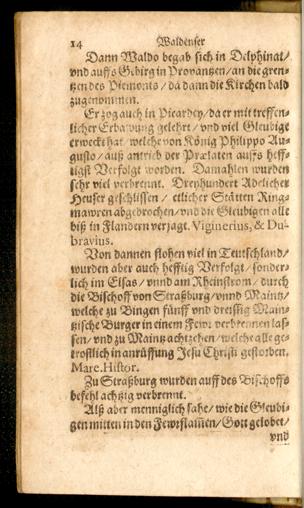 14 Waldenser
Dann Waldo begab sich in Delphinat/
vnd auffs Gebirg in Provantzen/an die gren-
tzen des Piemonts / da dann die Kirchen bald
zugenommen.
Er zog auch in Picardey/da er mit treffen-
licher Erbawung gelehrt / vnd viel Gleubige
erweckt hat/ welche von König Philippo Au-
gusto / auß antrieb der Prælaten auffs heff-
tigst Verfolgt worden. Damahlen wurden
sehr viel verbrennt. Dreyhundert Adelicher
Heuser geschlissen / etlicher Stätten Ring-
mawren abgebrochen/vnd die Gleubigen alle
biß in Flandern verjagt. Viginerius, & Du-
bravius.
Von dannen flohen viel in Teutschland/
wurden aber auch hefftig Verfolgt / sonder-
lich im Elsas / vnnd am Rheinstrom / durch
die Bischoff von Straßburg/ vnnd Maintz/
welche zu Bingen fünff vnd dreissig Main-
tzische Burger in einem Fewr verbrennen las-
sen/ vnd zu Maintz achtzehen / welche alle ge-
trostlich in anrüffung Jesu Christi gestorben.
Marc. Histor.
Zu Straßburg wurden auff des Bischoffs
befehl achtzig verbrennt.
Alß aber menniglich sahe / wie die Gleubi-
gen mitten in den Fewrflam̃en/Gott gelobet/
vnd